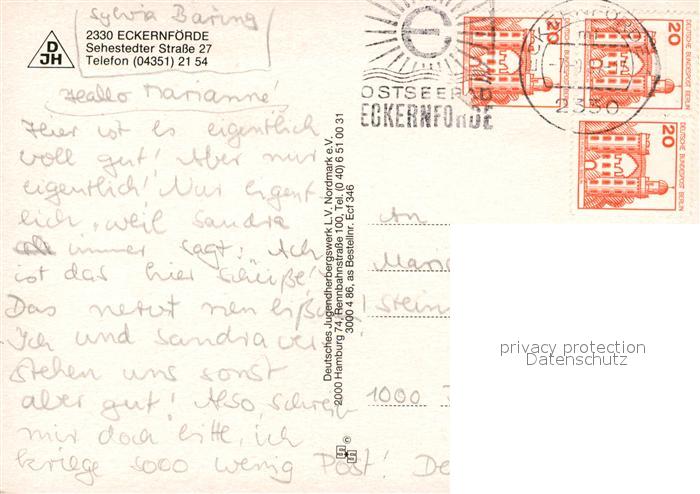 Sylvia Baring
D
JH
2330 ECKERNFÖRDE
Sehestedter Straße 27
Telefon (04351) 21 54
Hallo Marianne!
Hier ist es eigentlich
voll gut! Aber nur
eigentlich! Nur eigent
lich, weil Sandra
immer sagt: "Ach
ist das hier scheiße!"
Das nervt
Ich und Sandra ver-
stehen uns sonst
aber gut! Also, schreib
mir doch bitte, ich
kriege sooo wenig Post!
Deutsches Jugendherbergswerk L.V. Nordmark e.V.
2000 Hamburg 74, Rennbahnstraße 100, Tel. (0 40) 6 51 00 31
3000 4 86, as Bestellnr. Ecf 346
©
OSTSEEBAD
ECKERNFÖRDE
ECKERNFÖRDE
2330
20
DEUTSCHE BUNDESPOST
20
DEUTSCHE BUNDESPOST BERLIN
20
DEUTSCHE BUNDESPOST BERLIN
An
Mari
Stein
1000
privacy protection
Datenschutz